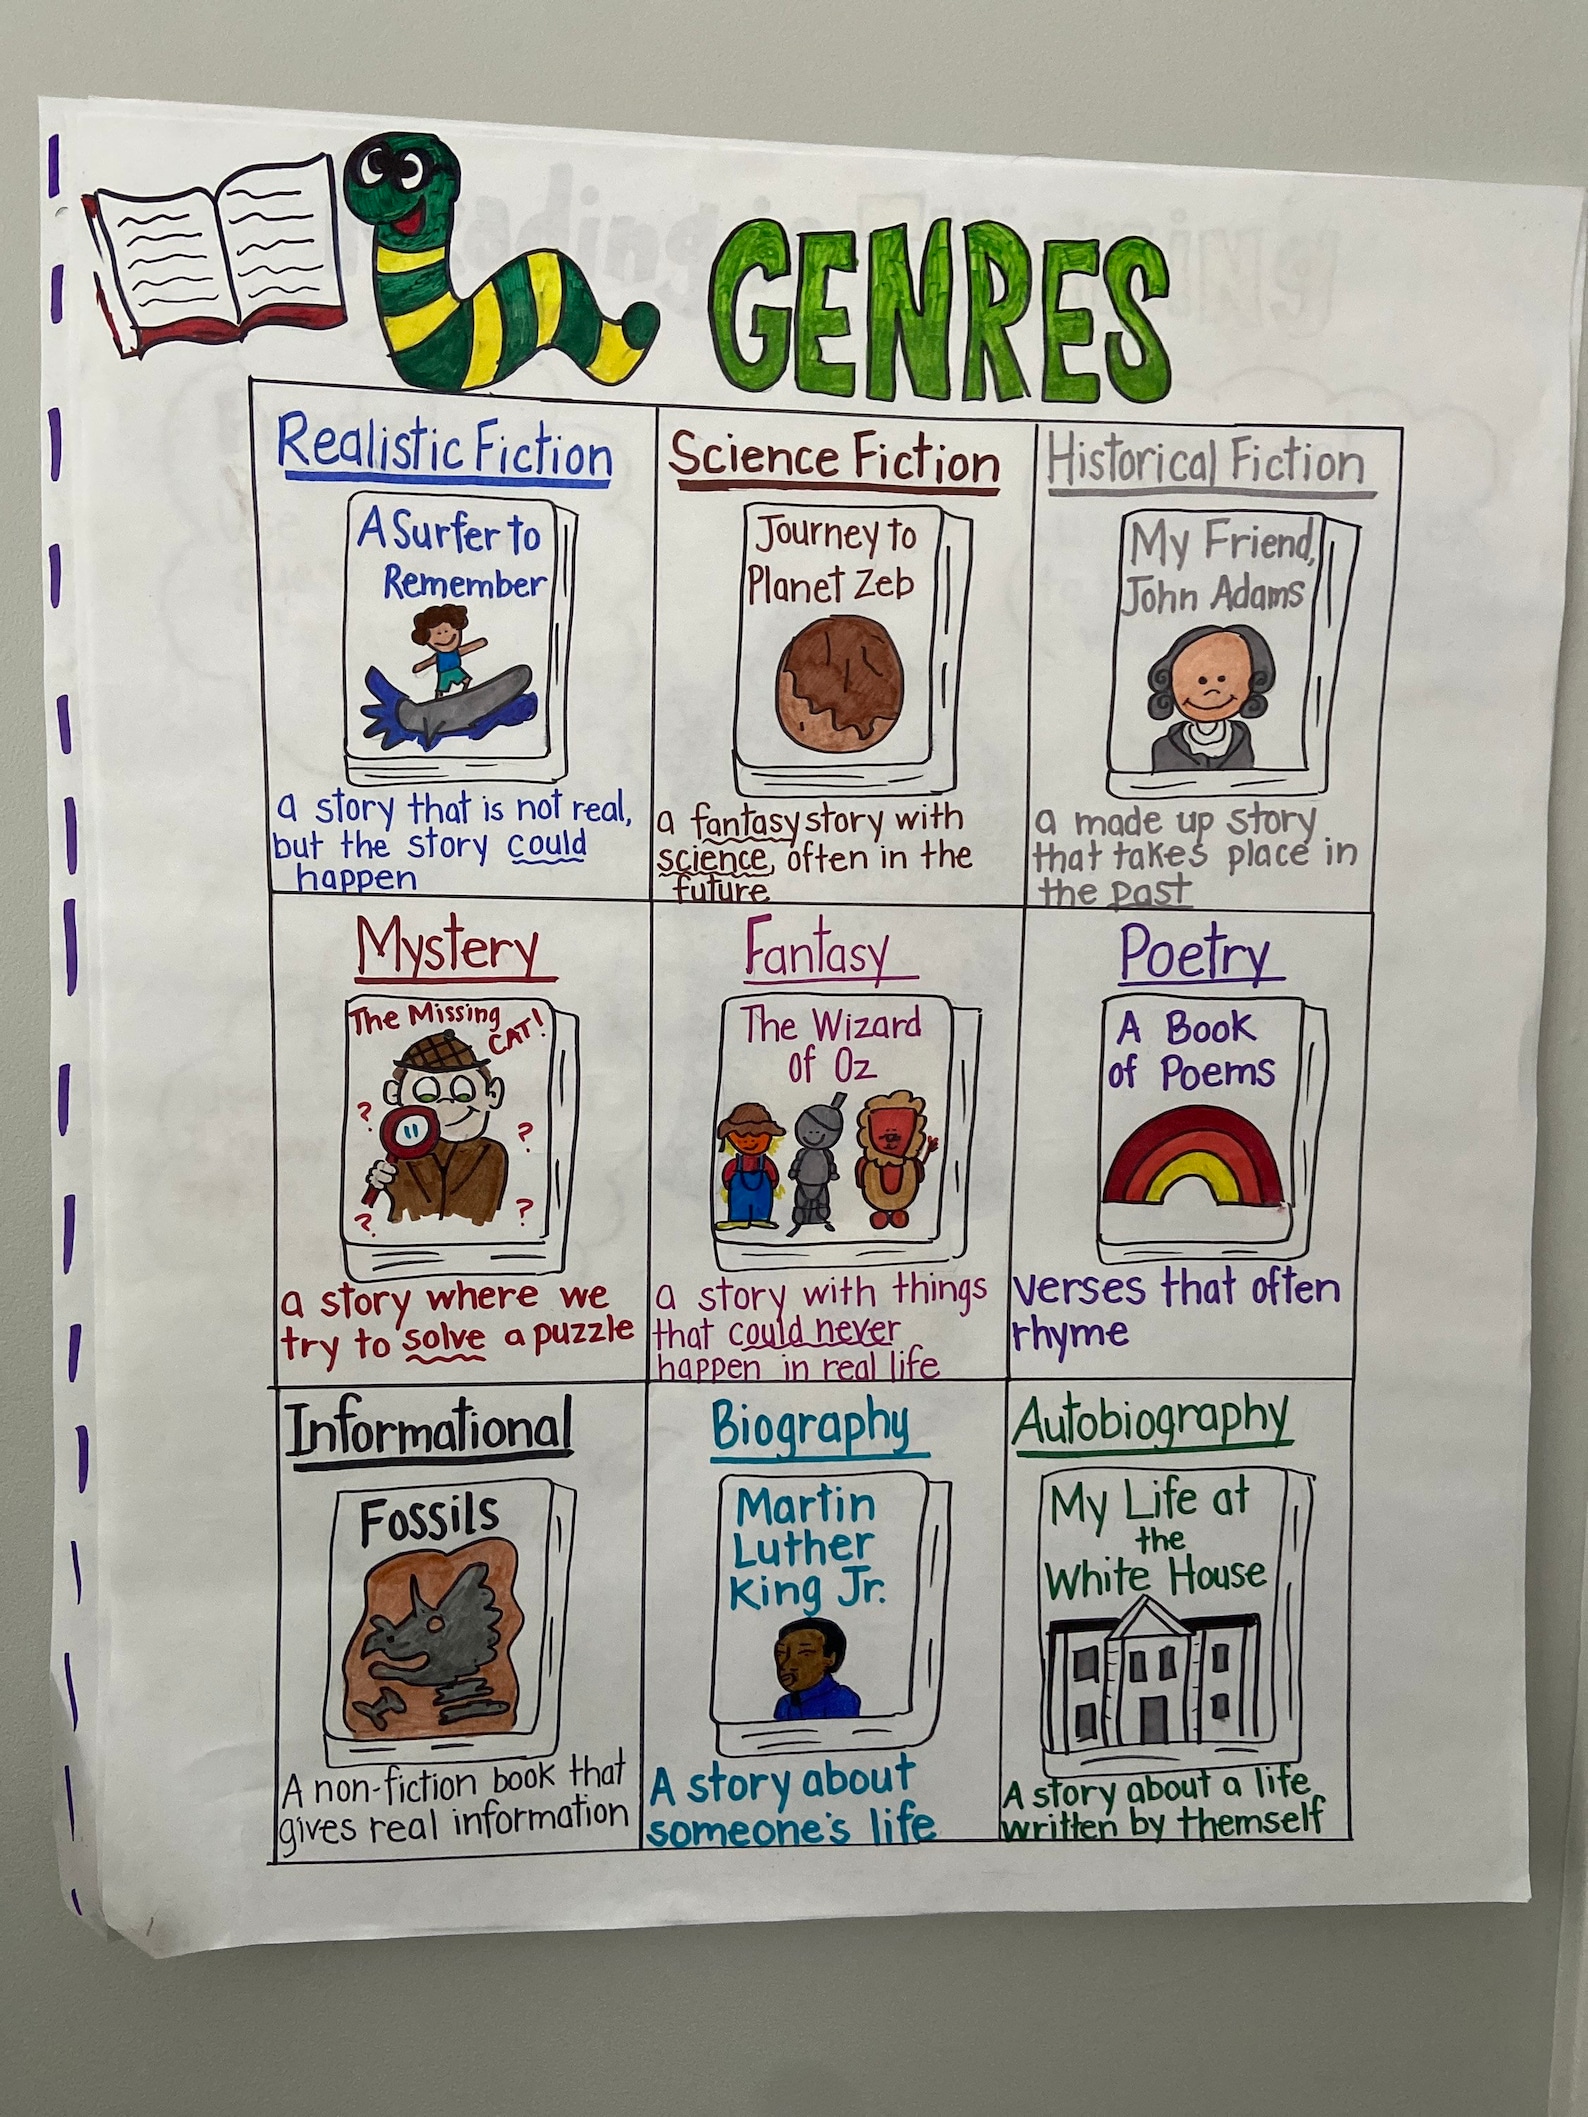 GENRES
Realistic Fiction
A Surfer to
Remember
a story that is not real,
but the story could
happen
Science Fiction
Journey to
Planet Zeb
a fantasy story with
science, often in the
future
Historical Fiction
My Friend,
John Adams
a made up story
that takes place in
the past
Mystery
The Missing
CAT!
?
?
?
?
a story where we
try to solve a puzzle
Fantasy
The Wizard
of Oz
a story with things
that could never
happen in real life
Poetry
A Book
of Poems
verses that often
rhyme
Informational
Fossils
A non-fiction book that
gives real information
Biography
Martin
Luther
King Jr.
A story about
someone's life
Autobiography
My Life at
the
White House
A story about a life
written by themself